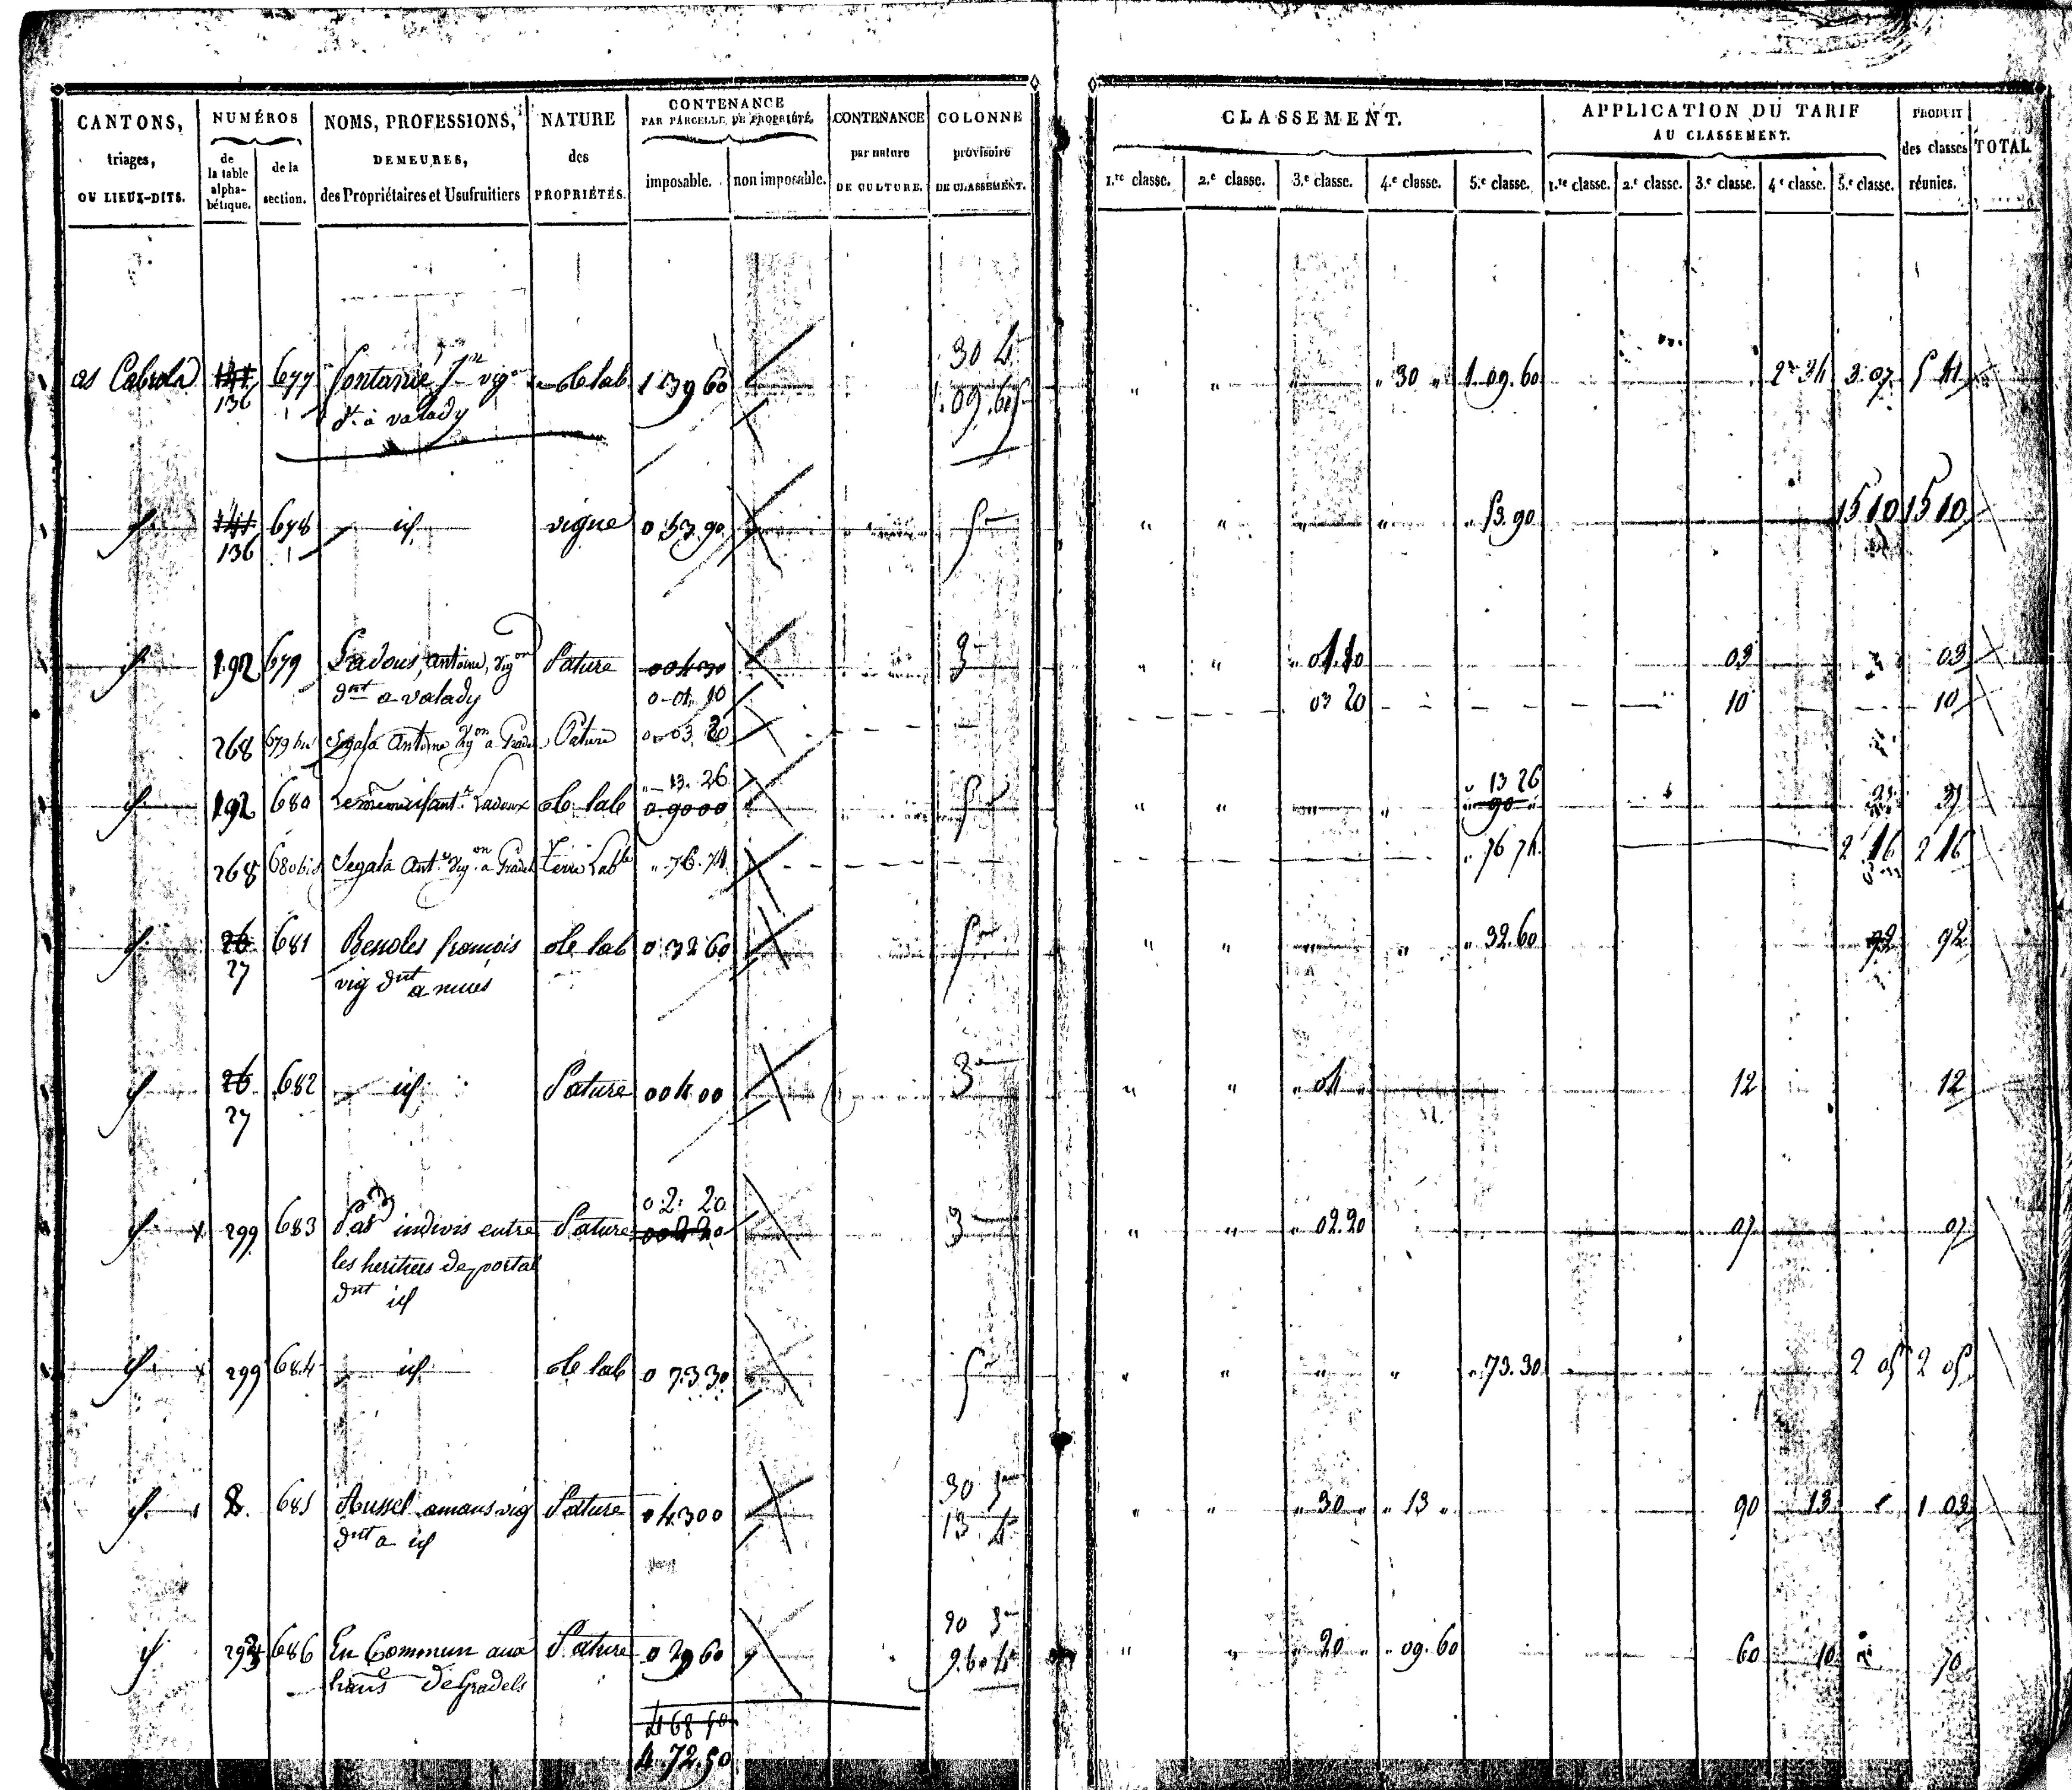 CANTONS, triages, OU LIEUX-DITS.
NUMÉROS de la table alphabétique. de la section.
NOMS, PROFESSIONS, DEMEURES, des Propriétaires et Usufruitiers
NATURE des PROPRIÉTÉS.
CONTENANCE PAR PARCELLE DE PROPRIÉTÉ, imposable. non imposable.
CONTENANCE par nature DE CULTURE.
COLONNE provisoire DE CLASSEMENT.
CLASSEMENT.
1.re classe. 2.e classe. 3.e classe. 4.e classe. 5.e classe.
APPLICATION DU TARIF AU CLASSEMENT.
1.re classe. 2.e classe. 3.e classe. 4.e classe. 5.e classe.
PRODUIT des classes réunies.
TOTAL
677 1 39 60 30 4 " " " 30 " 1.09.60 2 34 3.07 5 41
136 dt à valady 1.09.60
141 678 id vigne 0 53 90 5 " " " " " 53.90 15 10 15 10
136
id 192 679 Ladous, antoine, vigon Pature 3 " " " 01.10 03 03
dnt a valady 0-01.10 03 20 10 10
268 679 bis Segala Antoine Vgon a Pature 0-03.20
" 13.26 " 13 26
id 192 680 Ladoux 0 90 00 " " " " " 90 "
268 680 bis Segala Ant.e Vig.on a Terre Labl " 76.74 " 76 74 2 16 2 16
id 26 681 François 0 32 60 5 " " " " " 32.60 92 92
27 vig dnt a
id 26 682 id Pature 0 04 00 3 " " " 04 12 12
27
0 2 20
id 299 683 indivis entre Pature 0 02 20 3 " " " 02.20 07 07
les heritiers de portal
dnt id
id 299 684 id 0 73 30 5 " " " " " 73.30 2 05 2 05
30 3
id 8. 685 amans vig Pature 0 43 00 " " " 30 " " 13 " 90 13 1 03
dnt a id 13 4
20 3
id 686 En Commun aux Pature 0 29 60 9.60 4 " " " 20 " " 09.60 60 10 70
de Gradels
4 68 50
4 72.50